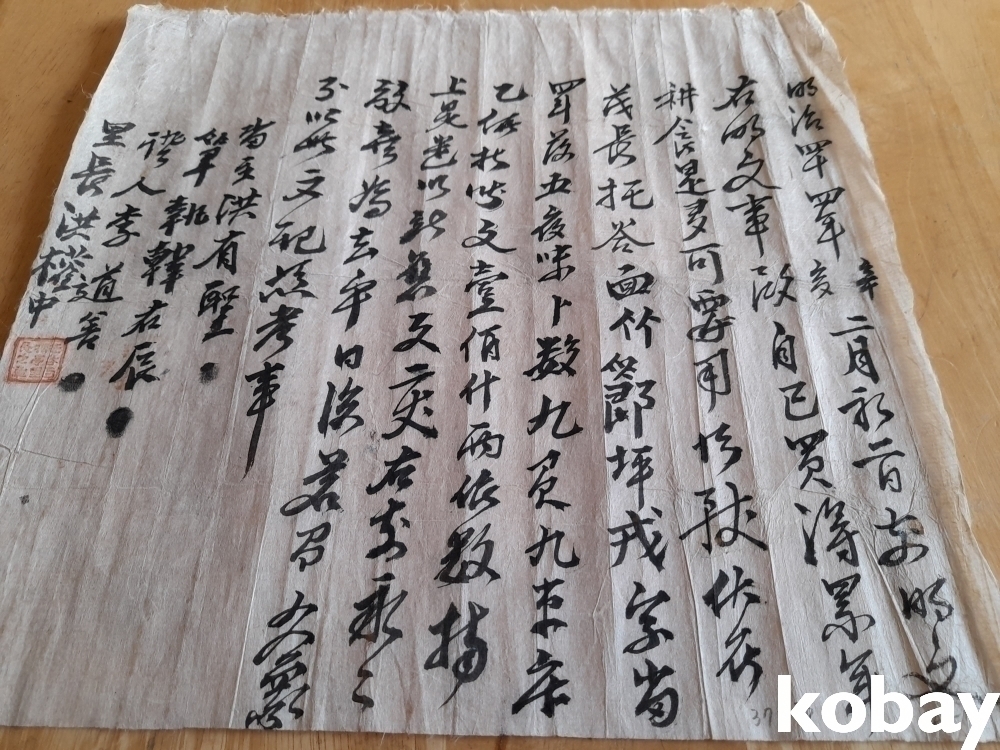 明治四十四年辛亥二月初二日前明文
右明文事段自己買得累年
耕食是多可要用所致伏在
茂長托谷面竹節坪戎字畓
四斗落五夜味卜数九負九束庫
乙価折皆文壹佰什両依数捧
上是遣以新旧文二丈右前永永
放賣為去乎日後若有
以此文記憑考事
畓主洪有聖
筆執韓右辰
證人李道善
里長洪 中
kobay